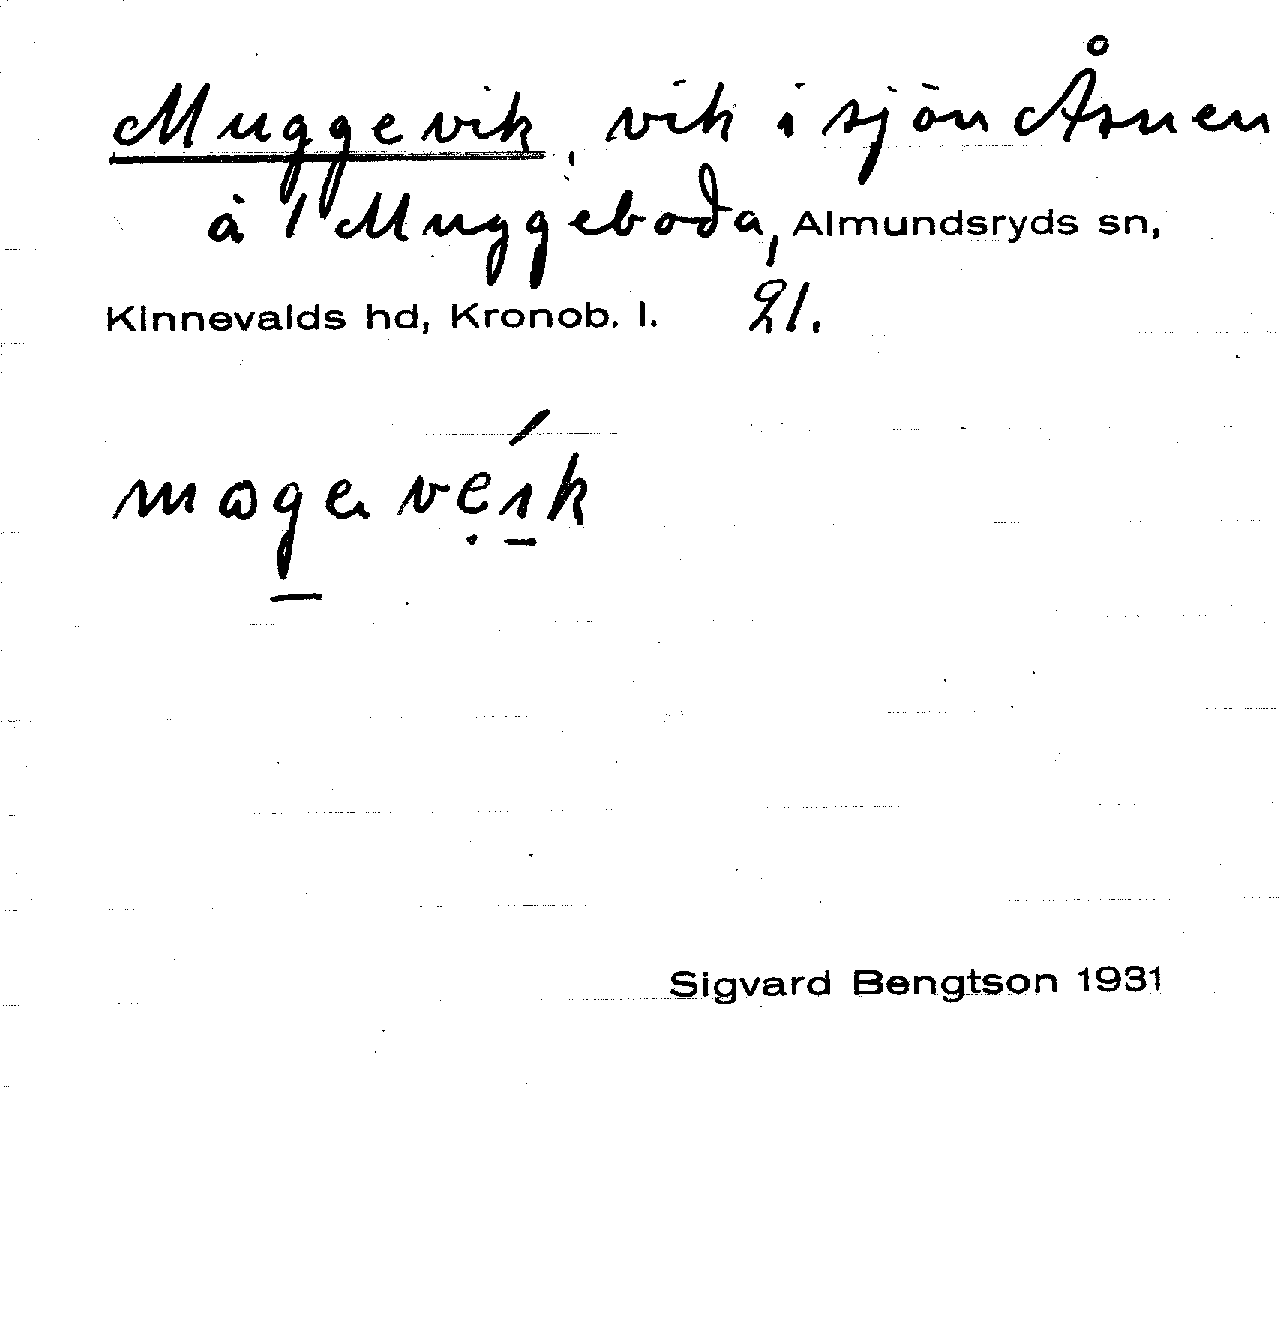 Muggevik, vik i sjön Åsnen
å 1 Muggeboda, Almundsryds sn,
Kinnevalds hd, Kronob. l. 21.
Sigvard Bengtson 1931